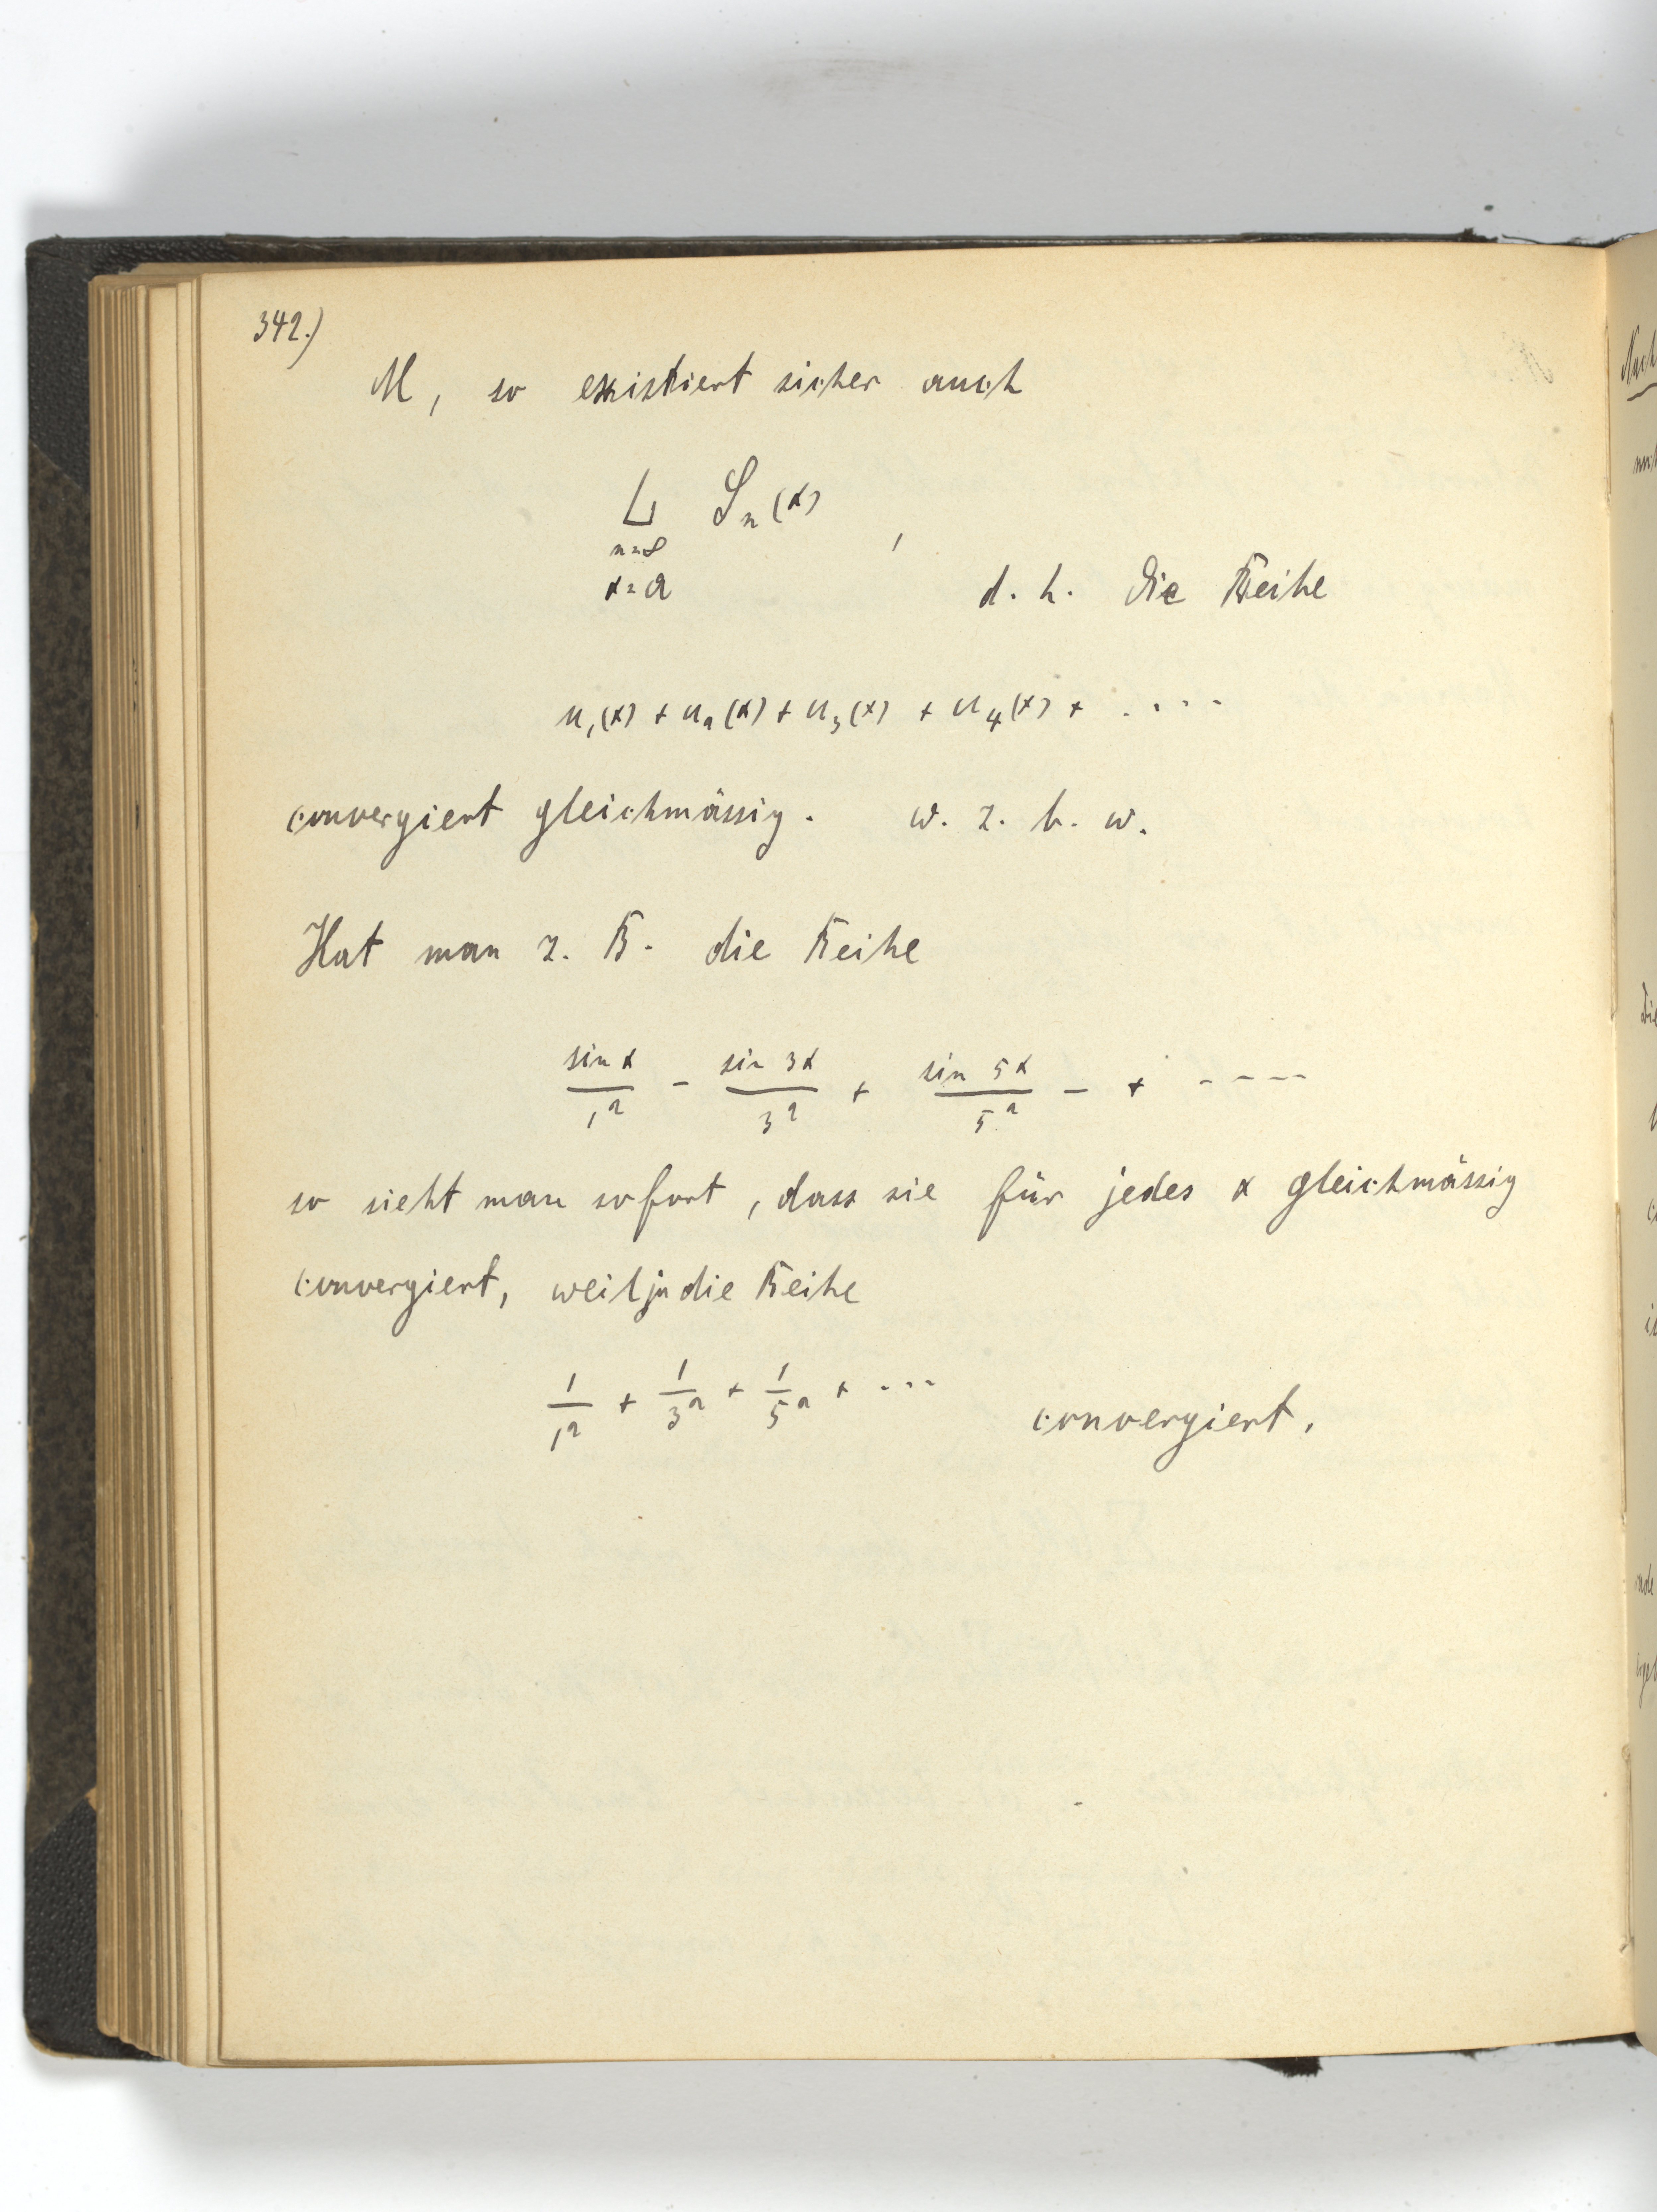 342.)
M, so existiert sicher auch
L Sₙ(x) ,
n=∞
x=a
d. h. die Reihe
u₁(x) + u₂(x) + u₃(x) + u₄(x) + ....
convergiert gleichmässig. w. z. b. w.
Hat man z. B. die Reihe
sin x / 1² - sin 3x / 3² + sin 5x / 5² - + ----
so sieht man sofort, dass sie für jedes x gleichmässig
convergiert, weil ja die Reihe
1/1² + 1/3² + 1/5² + ...
convergiert.